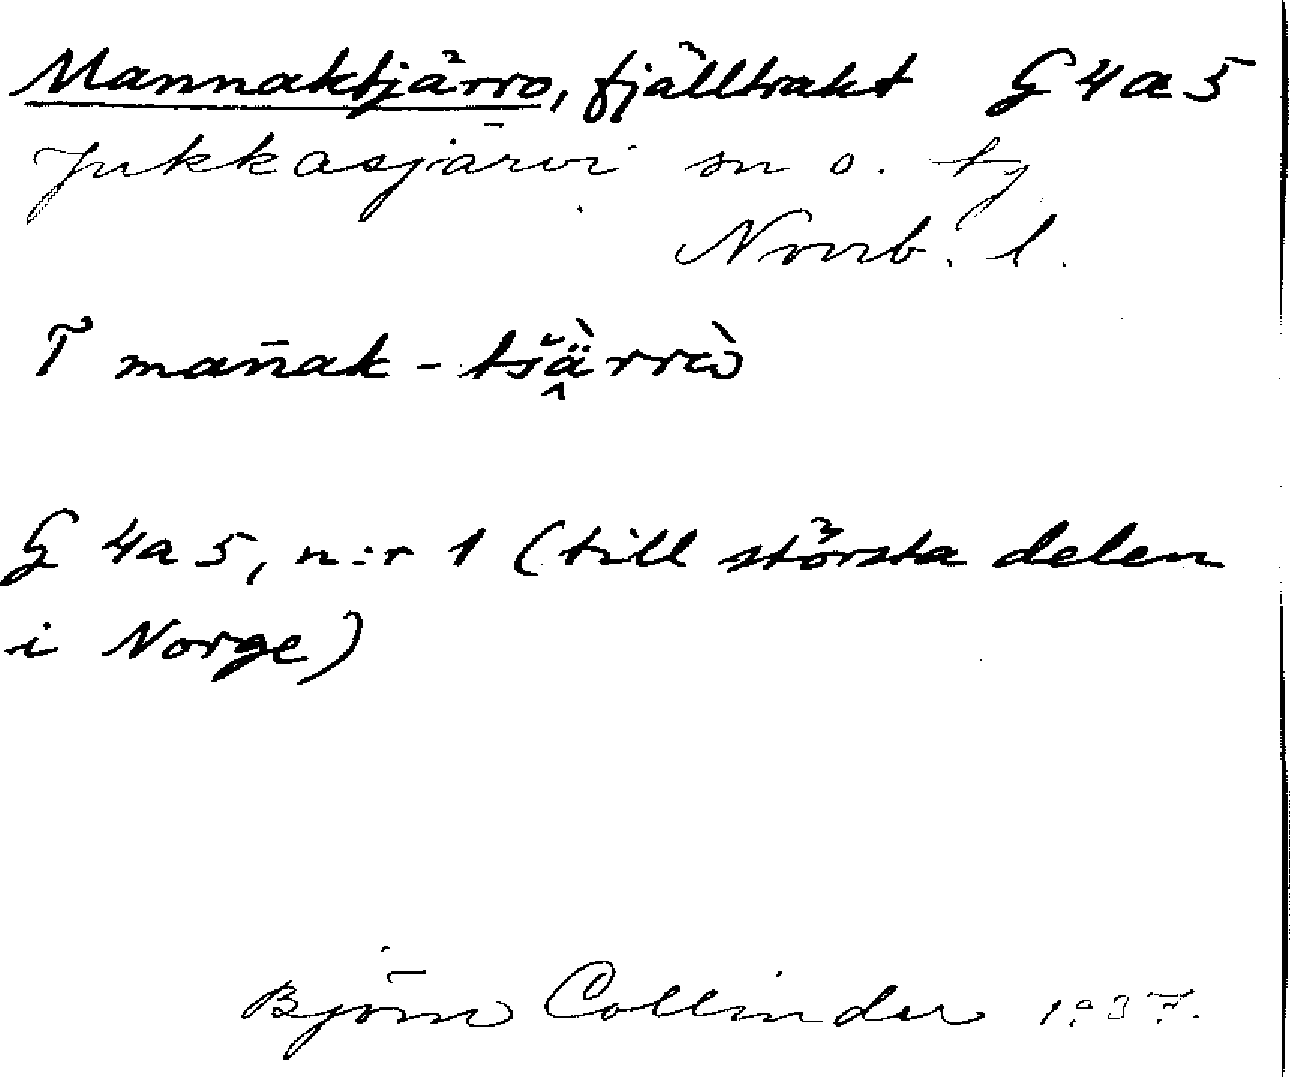 Mannaktjårro, fjälltrakt G 4 a 5
Jukkasjärvi sn o. tg
Norrb. l.
T man̄ak - tšä̭̀rrɷ̀
G 4a 5, n:r 1 (till största delen
i Norge)
Björn Collinder 1937.